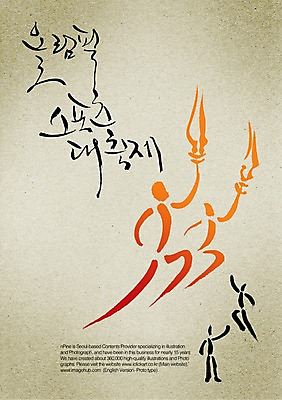 올림픽
스포츠
대축제
nPine is Seoul-based Contents Provider specializing in illustration
and Photograph, and have been in this business for nearly 15 years
We have created about 360,000 high-quality illustrations and Photo
graphs. Please visit the website www.iclickart.co.kr(Main website),
www.imagehub.com (English Version- Proto type)